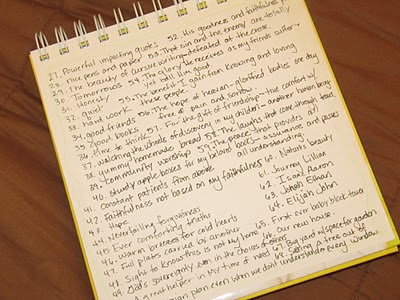 27. Powerful impacting quotes
28. nice pens and paper
29. The beauty of cursive writing
30. Tomorrows
31. Honesty
32. quiet
33. hard work
34. good friends
35. good books
36. time to think
37. watching the wheels of discovery in my children
38. yummy homemade bread
39. community worship
40. Sturdy apple boxes for my beloved books
41. Constant patients from above
42. Faithfulness not based on my faithfulness
43. Hope
44. Neverfailing forgiveness
45. Ever comforting truths
46. warm breezes for cold hearts
47. Full plates carried by another
48. Sight to know this is not my home
49. God's sovereignty even in the choices of
A great helper in my time of need
plan even when we don't understand
52. His goodness and faithfulness
53. That sin and the enemy are totally
defeated at the cross.
54. The glory He receives as my friends suffer
yet hail Him good
55. The benefit I gain from knowing and loving
these people.
56. The hope of heaven - glorified bodies one day
free of pain and sorrow
57. For the gift of friendship - true comfort w/
another human being
58. The laughs that come through tears.
59. The peace that provides
assurance and
60. Nature's beauty
61. Journey Lillian
62. Isaac Aaron
63. Ethan
64. Elijah John
65. First ever baby block tower
66. our new house
67. Big yard w/ space for garden
68. Seeing a tree out of
every window